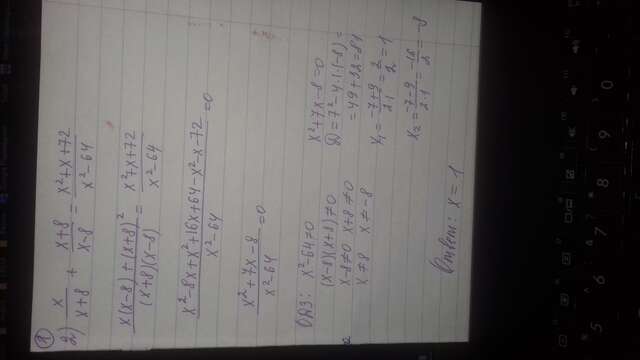 ①
2) x/(x+8) + (x+8)/(x-8) = (x²+x+72)/(x²-64)
(x(x-8)+(x+8)²)/((x+8)(x-8)) = (x²+x+72)/(x²-64)
(x²-8x+x²+16x+64-x²-x-72)/(x²-64) = 0
(x²+7x-8)/(x²-64) = 0
ОДЗ: x²-64≠0
(x-8)(x+8)≠0
x-8≠0 x+8≠0
x≠8 x≠-8
x²+7x-8=0
D=7²-4·1·(-8)=
=49+32=81
x₁=(-7+9)/(2·1)=2/2=1
x₂=(-7-9)/(2·1)=-16/2=-8
Ответ: x=1
5 6 7 8 9 0